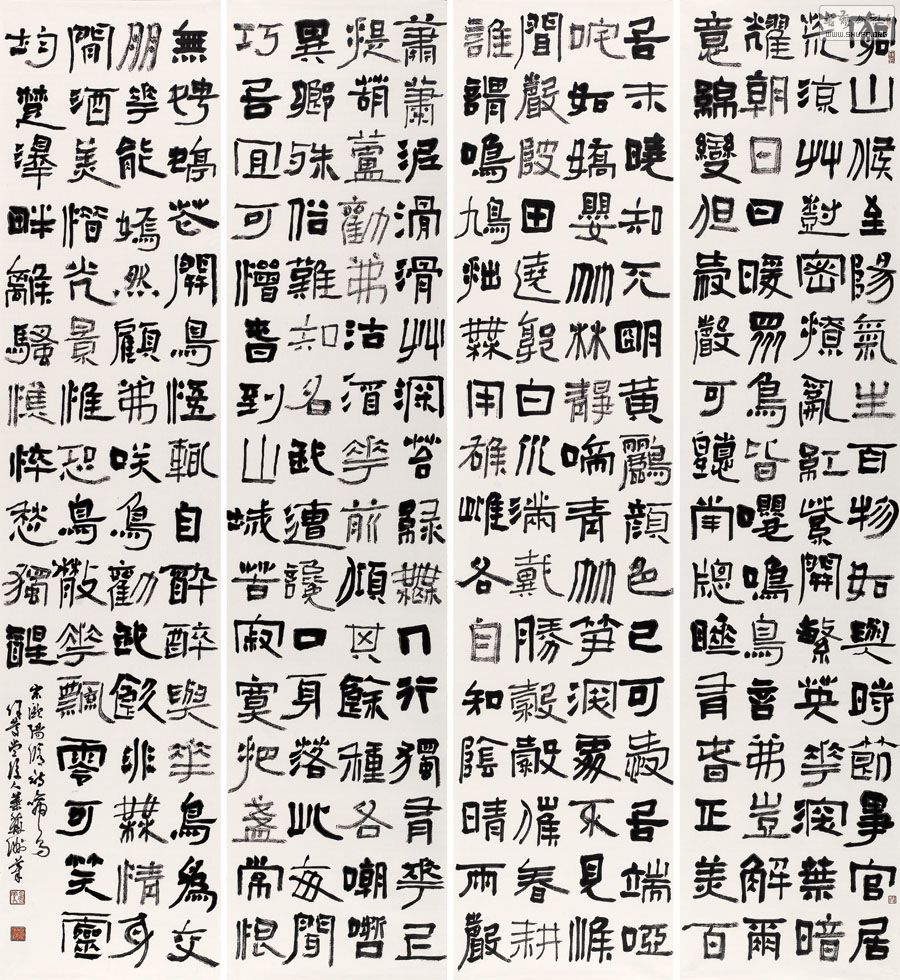 窮山候至陽氣生百物如與時節事官居
荒涼艸樹密撩亂紅紫開繁英花深葉暗
耀朝日日暖眾鳥皆嚶鳴鳥言我豈解爾
意綿蠻但愛聲可聽南窗睡多春正美百
舌未曉知天明黃鸝顏色已可愛舌端啞
咤如嬌嬰竹林靜啼青竹筍深處不見惟
聞聲陂田遶郭白水滿戴勝穀穀催春耕
誰謂鳴鳩拙無用雄雌各自知陰晴雨聲
蕭蕭泥滑滑艸深苔綠無人行獨有花上
提葫蘆勸我沽酒花前傾其餘種各嘲哳
異鄉殊俗難知名我遭讒口身落此每聞
巧舌宜可憎春到山城苦寂寞把盞常恨
無娉婷花開鳥語輒自醉醉與花鳥為交
朋花能嫣然顧我笑鳥勸我飲非無情身
閒酒美惜光景惟恐鳥散花飄零可笑靈
均楚澤畔離騷憔悴愁獨醒
宋歐陽修詩啼鳥
WWW.SHUFA.ORG